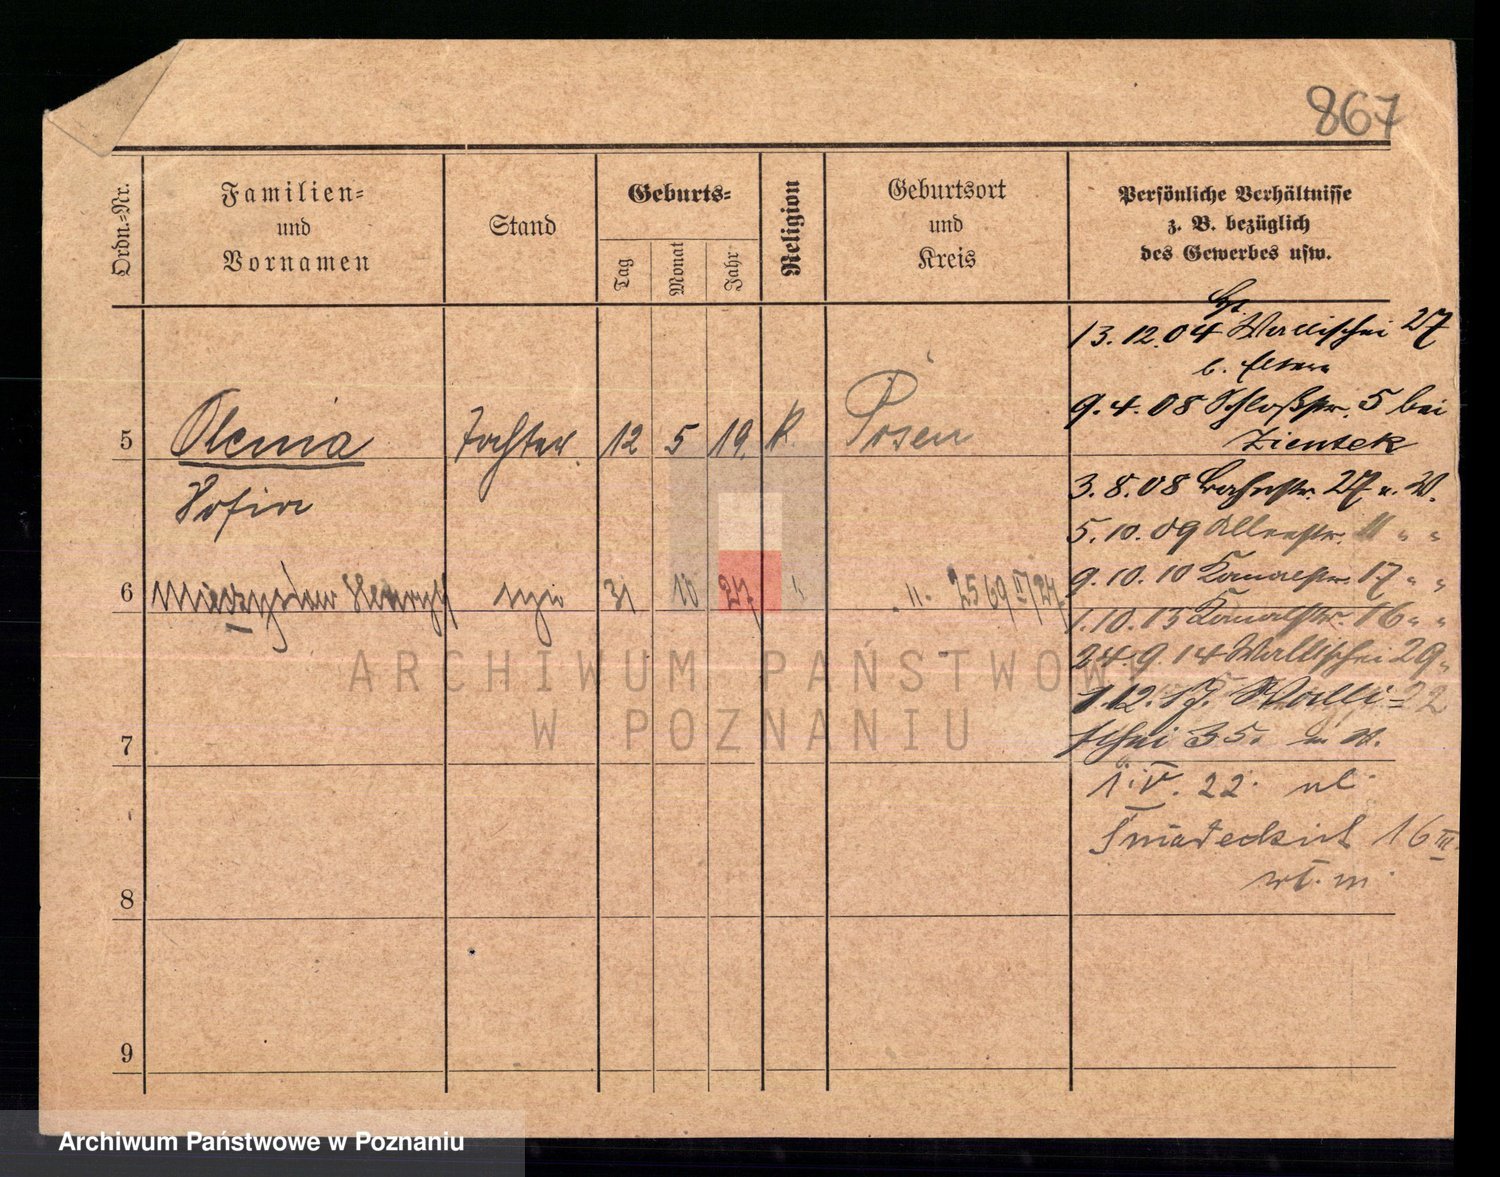 867
Ordn.=Nr.
Familien=
und
Vornamen
Stand
Geburts=
Tag
Monat
Jahr
Religion
Geburtsort
und
Kreis
Persönliche Verhältnisse
z. B. bezüglich
des Gewerbes usw.
13.12.04 Wallischei 27
b. Eltern
9.4.08 Schloßstr. 5 bei
Zientek
5 Tochter 12 5 19. k. Posen
Sofia
3.8.08 27 u. W.
5.10.09 11 " "
9.10.10 Kanalstr. 17 " "
6 Mieczysław Henryk syn 31 10 27 " 2569 II/27
1.10.13 Kanalstr. 16 " "
24.9.14 Wallischei 29 "
1.12. Walli=
7 schei 35. W.
1.V.22. ul.
Śniadeckich 16 III.
m.
8
9
ARCHIWUM PAŃSTWOWE
W POZNANIU
Archiwum Państwowe w Poznaniu